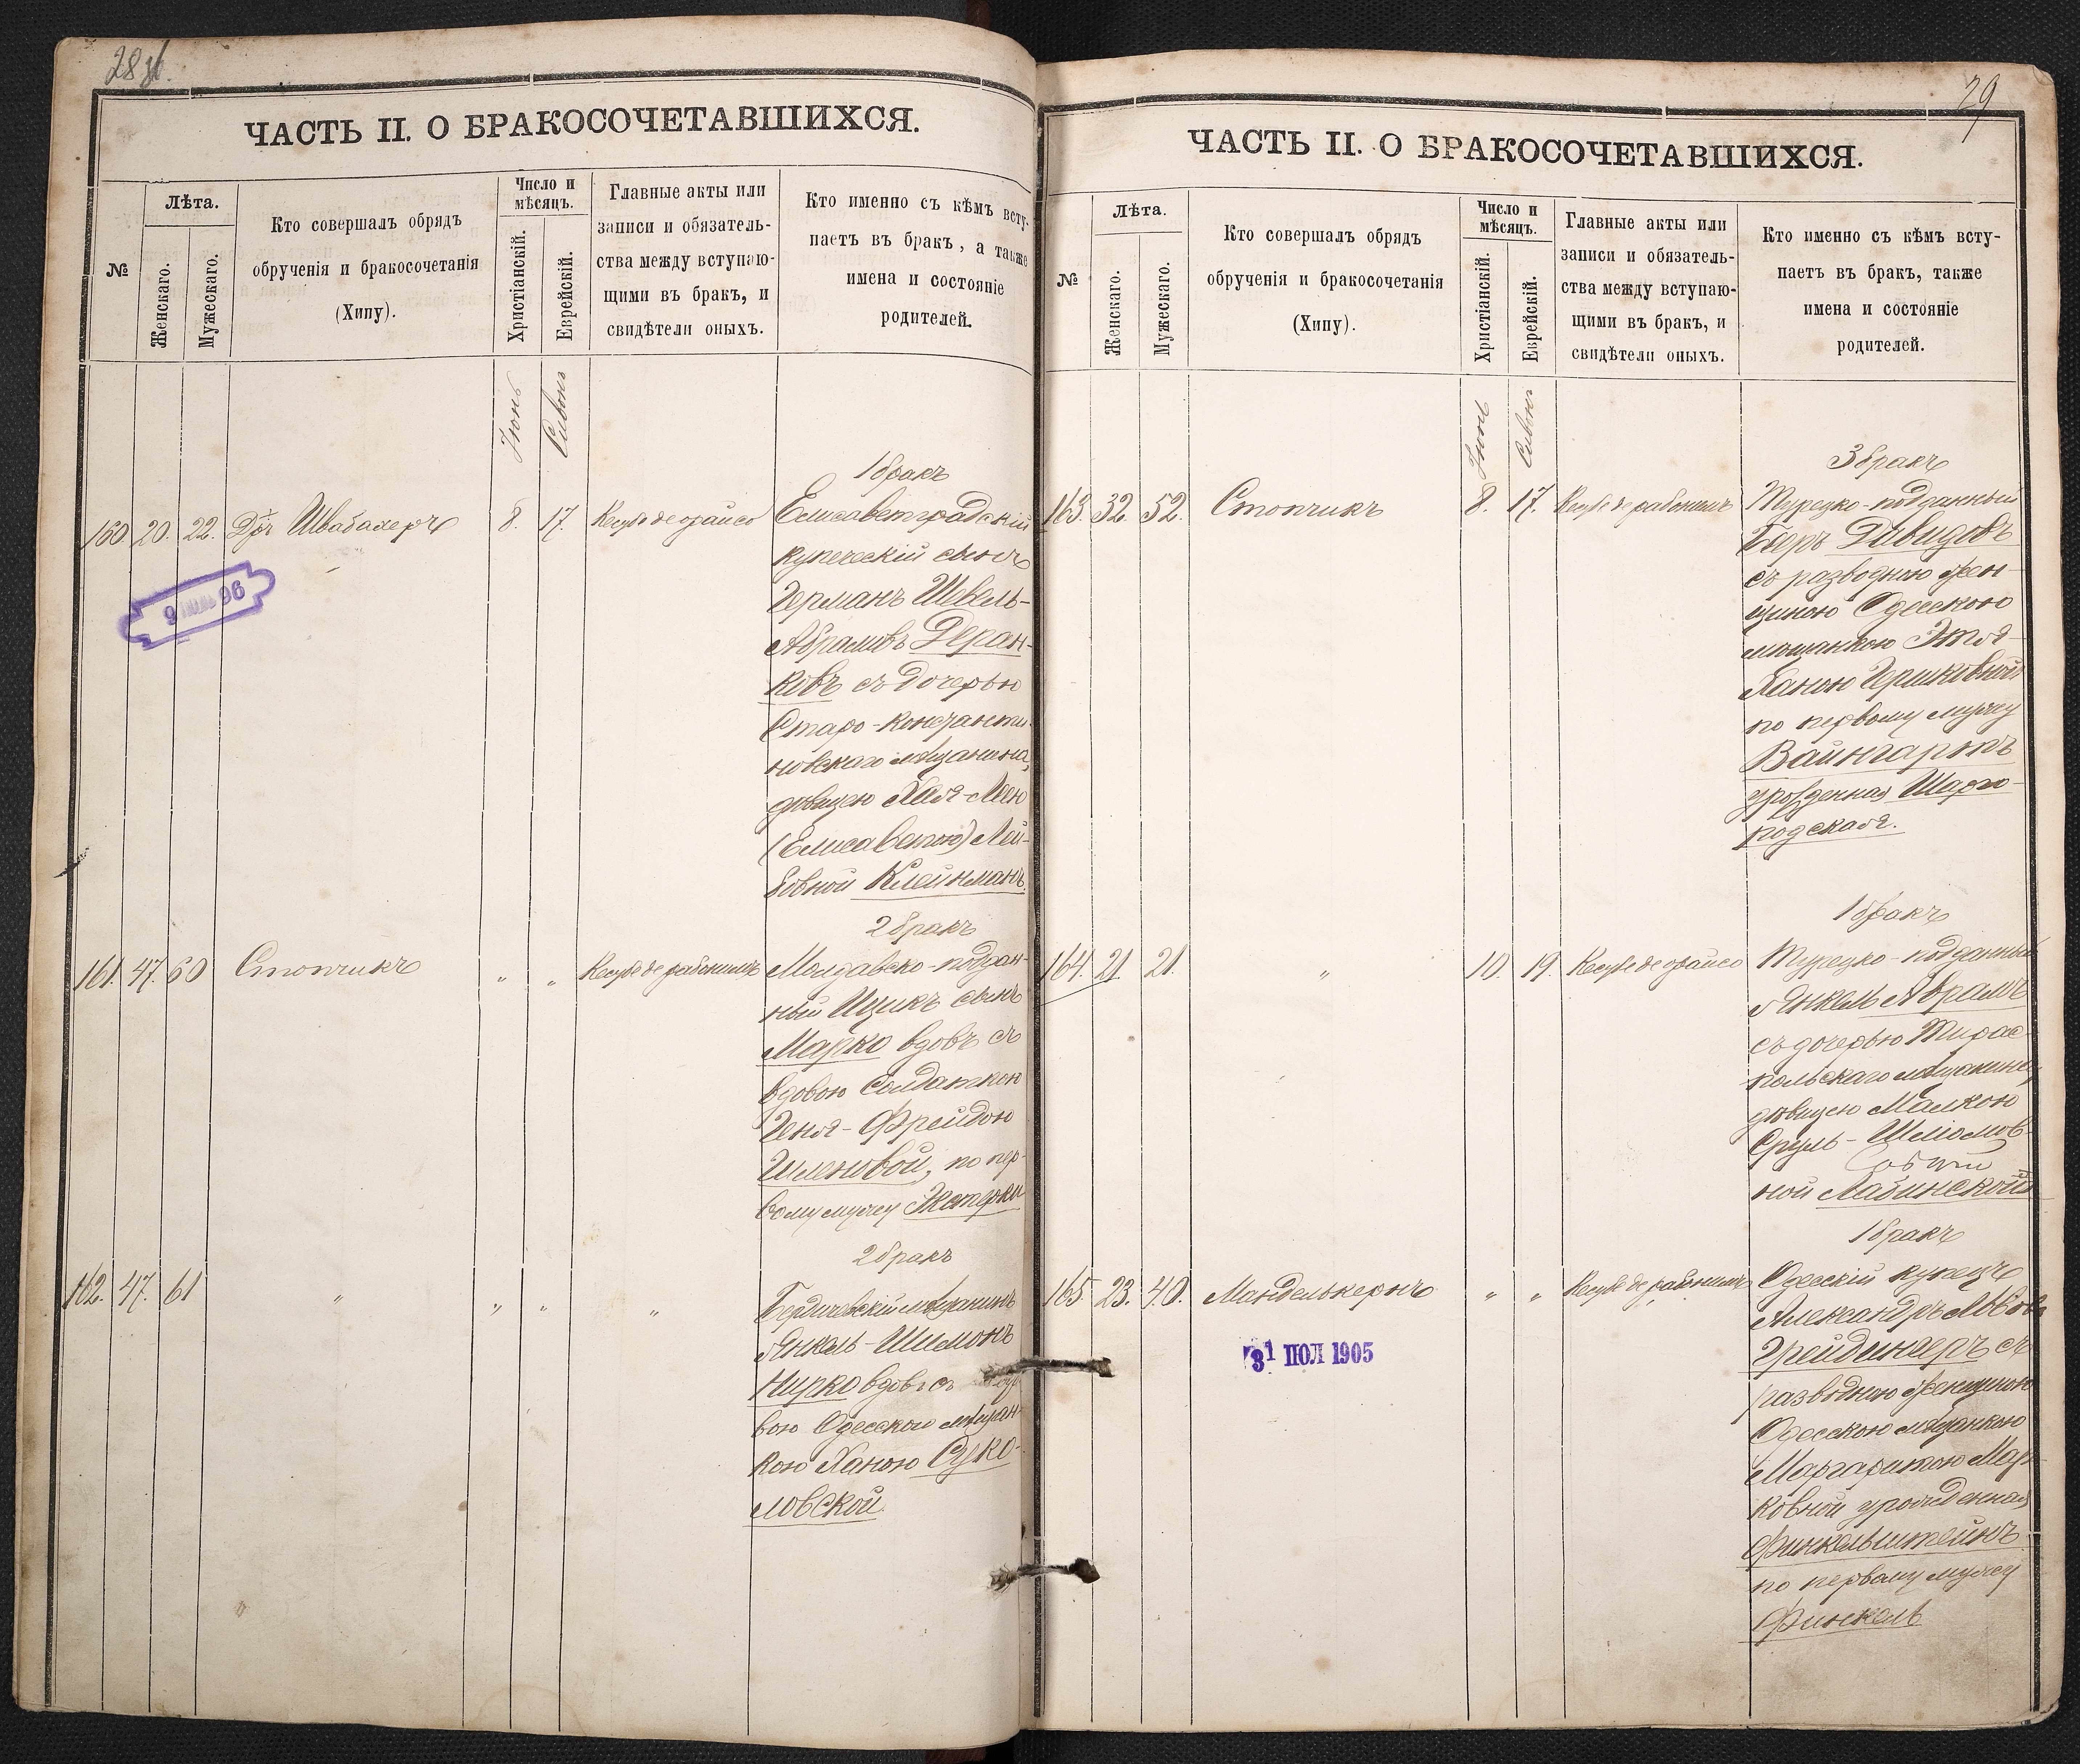 28
ЧАСТЬ II. О БРАКОСОЧЕТАВШИХСЯ.
№
Лѣта.
Женскаго.
Мужескаго.
Кто совершалъ обрядъ
обрученія и бракосочетанія
(Хипу).
Число и
мѣсяцъ.
Христіанскій.
Еврейскій.
Главные акты или
записи и обязатель-
ства между вступаю-
щими въ бракъ, и
свидѣтели оныхъ.
Кто именно съ кѣмъ всту-
паетъ въ бракъ, а также
имена и состояніе
родителей.
Іюнь
Сивонъ
1 бракъ
160. 20. 22. Дръ Швабахеръ 8. 17.
Елисаветградскій
купеческій сынъ
Германъ Шевель-
Абрамовъ Деран-
ковъ съ дочерью
Старо-Константи-
новскаго мѣщанина,
дѣвицею Хая-Леею
(Елисаветою) Лей-
бовной Клейманъ
2 бракъ
161. 47. 60 Стопчикъ „ „
Молдавско-поддан-
ный Ицикъ сынъ
Марко вдовъ съ
вдовою Солдаткою
Геня-Фрейдою
по пер-
вому мужу
2 бракъ
162. 47. 61 „ „ „ „
Бердичевскій мѣщанинъ
Янкель-Шимонъ
Нирко вдовъ съ
вою Одесскою мѣщан-
кою Ханою Суко-
ловской.
29
ЧАСТЬ II. О БРАКОСОЧЕТАВШИХСЯ.
№
Лѣта.
Женскаго.
Мужескаго.
Кто совершалъ обрядъ
обрученія и бракосочетанія
(Хипу).
Число и
мѣсяцъ.
Христіанскій.
Еврейскій.
Главные акты или
записи и обязатель-
ства между вступаю-
щими въ бракъ, и
свидѣтели оныхъ.
Кто именно съ кѣмъ всту-
паетъ въ бракъ, также
имена и состояніе
родителей.
Іюнь
Сивонъ
3 бракъ
163. 32. 52. Стопчикъ 8. 17.
Турецко-подданный
Беръ Давидовъ
съ разводною жен-
щиною Одесскою
мѣщанкою Этя-
Ханою Гершковной
по первому мужу
Вайнгартъ
урожденная Шарго-
родская.
1 бракъ
164. 21. 21. „ 10. 19.
Турецко-подданный
Янкель Абрамъ
съ дочерью Тирас-
польскаго мѣщанина,
дѣвицею Малкою
Сруль-Шліомов-
ной Лабинской
1 бракъ
165. 23. 40. Манделькернъ „ „
Одесскій купецъ
Александръ Львовъ
Грейдингеръ съ
разводною женщиною
Одесскою мѣщанкою
Маргаритою Мар-
ковной урожденная
Финкельштейнъ
по первому мужу
Финкель
31 ІЮЛ 1905